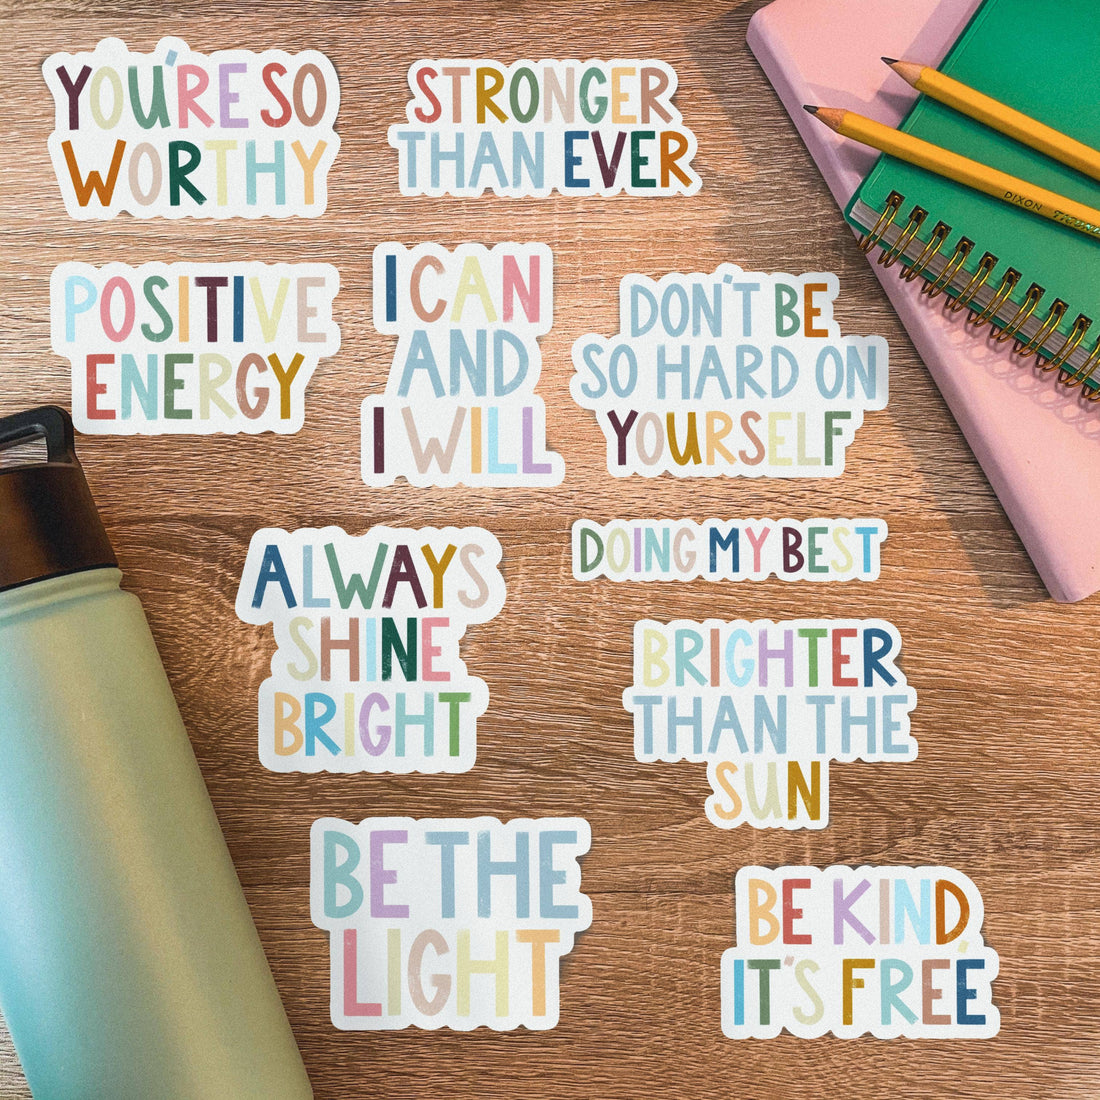 YOU'RE SO
WORTHY
STRONGER
THAN EVER
POSITIVE
ENERGY
I CAN
AND
I WILL
DON'T BE
SO HARD ON
YOURSELF
ALWAYS
SHINE
BRIGHT
DOING MY BEST
BRIGHTER
THAN THE
SUN
BE THE
LIGHT
BE KIND,
IT'S FREE
DIXON